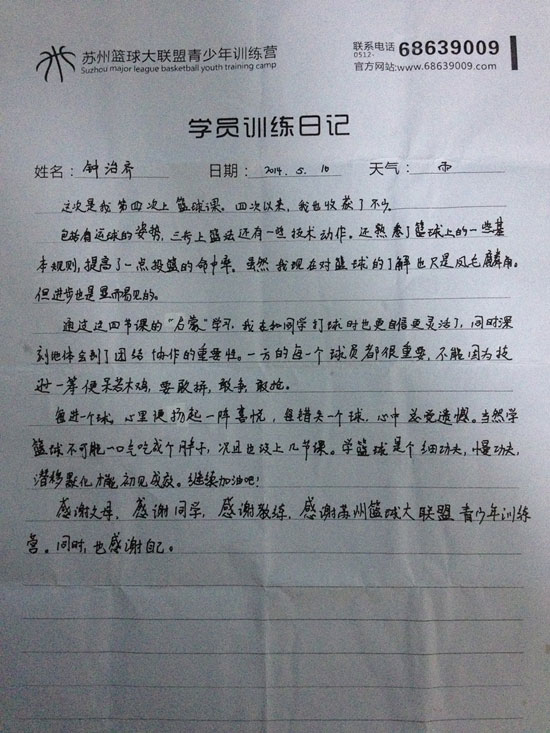 苏州篮球大联盟青少年训练营
Suzhou major league basketball youth training camp
联系电话 0512- 68639009
官方网站:www.68639009.com
学员训练日记
姓名: 钟治齐 日期: 2014.5.10 天气: 雨
这次是我第四次上篮球课。四次以来,我也收获了不少。
包括有运球的姿势,三步上篮法还有一些技术动作。还熟悉了篮球上的一些基
本规则,提高了一点投篮的命中率。虽然我现在对篮球的了解也只是凤毛麟角。
但进步也是显而易见的。
通过这四节课的“启蒙”学习,我在和同学打球时也更自信更灵活了,同时深
刻地体会到了团结协作的重要性。一方的每一个球员都很重要,不能因为技
逊一筹便呆若木鸡,要敢拼,敢争,敢抢。
每进一个球,心里便扬起一阵喜悦,每错失一个球,心中总觉遗憾。当然学
篮球不可能一口气吃成个胖子,况且也没上几节课。学篮球是个细功夫,慢功夫,
潜移默化才能初见成效。继续加油吧!
感谢父母,感谢同学,感谢教练,感谢苏州篮球大联盟青少年训练
营。同时,也感谢自己。